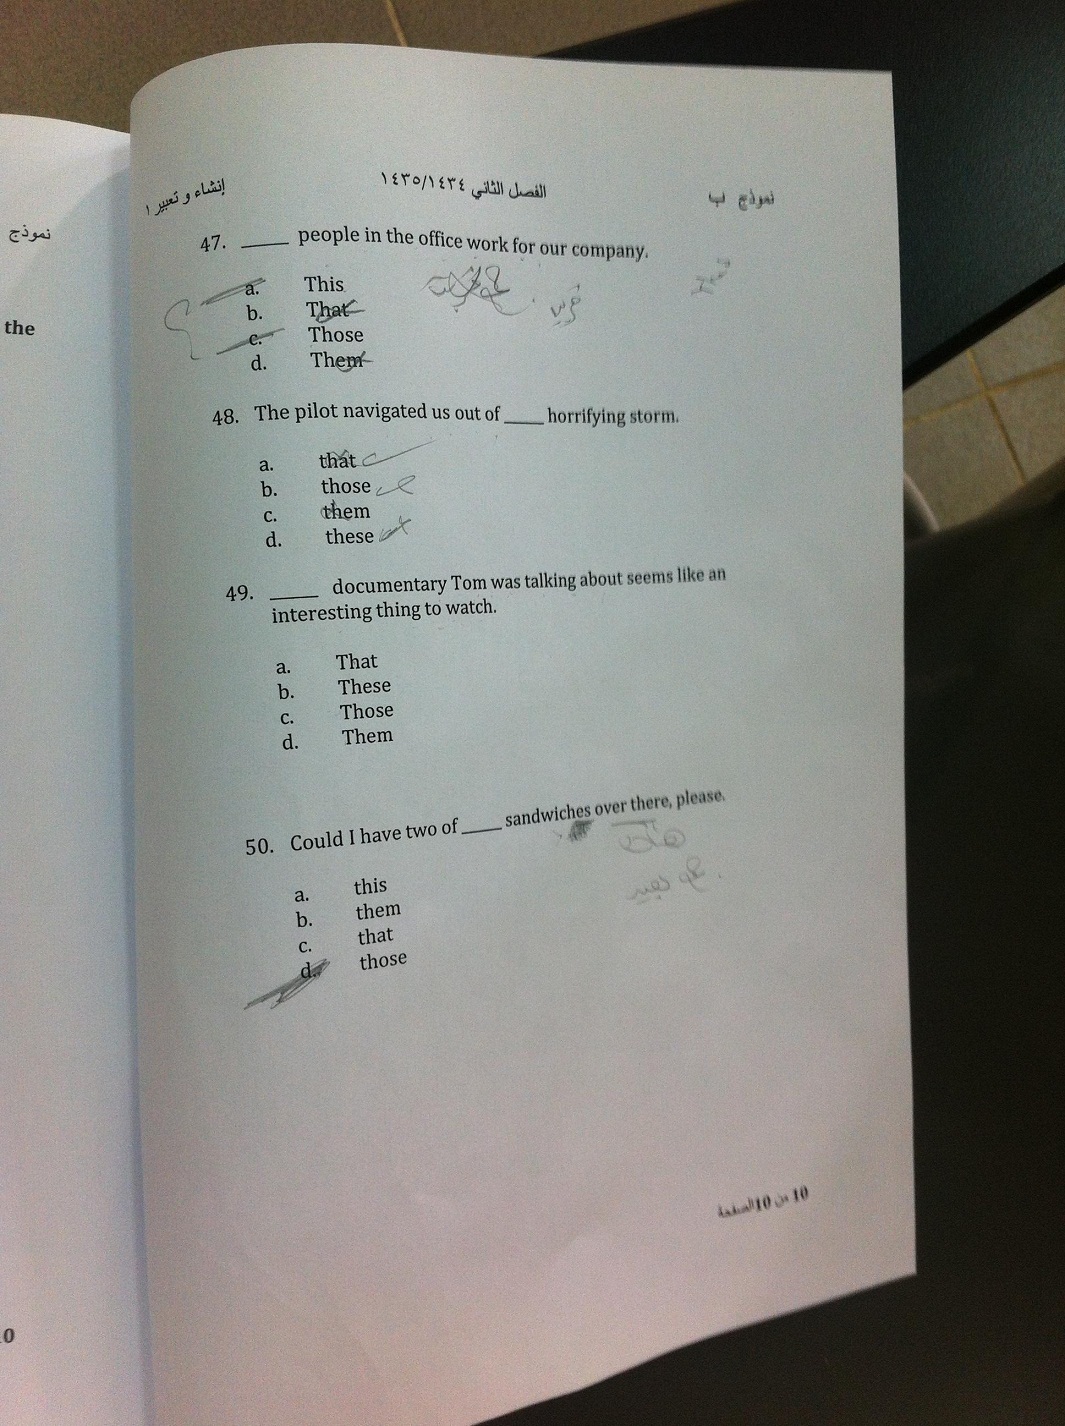 إنشاء و تعبير ١
الفصل الثاني ١٤٣٥/١٤٣٤
نموذج ب
نموذج
the
47. ____ people in the office work for our company.
a. This
b. That
c. Those
d. Them
48. The pilot navigated us out of ____ horrifying storm.
a. that
b. those
c. them
d. these
49. _____ documentary Tom was talking about seems like an
interesting thing to watch.
a. That
b. These
c. Those
d. Them
50. Could I have two of ____ sandwiches over there, please.
a. this
b. them
c. that
d. those
الصفحة 10 من 10
0